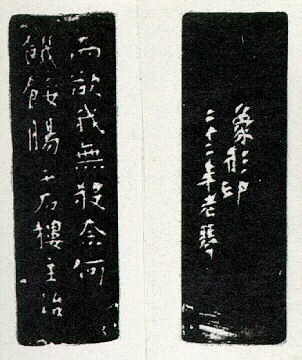 象形印
二十二年老
而欲我無殺奈何
饑餒腸千石樓主治